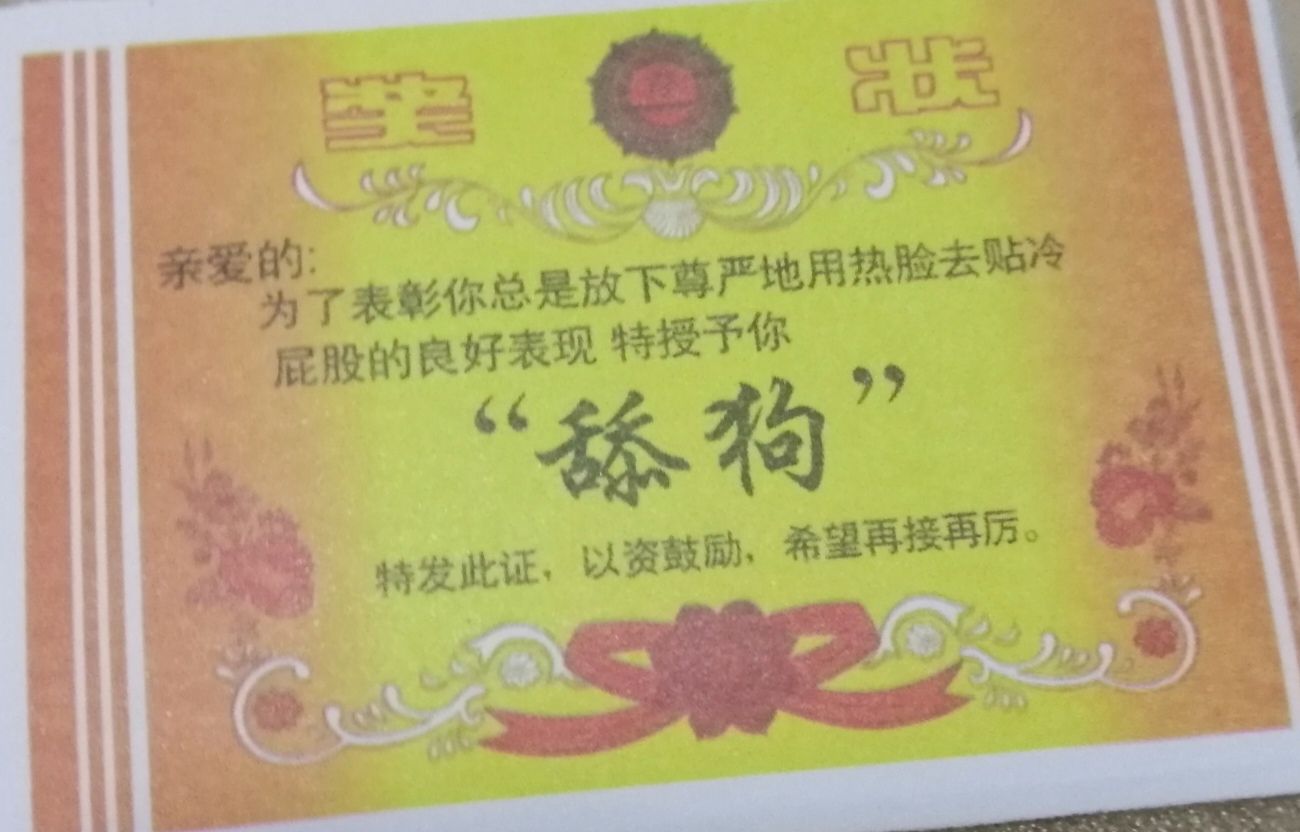 奖 状
亲爱的:
为了表彰你总是放下尊严地用热脸去贴冷
屁股的良好表现 特授予你
“舔狗”
特发此证，以资鼓励，希望再接再厉。